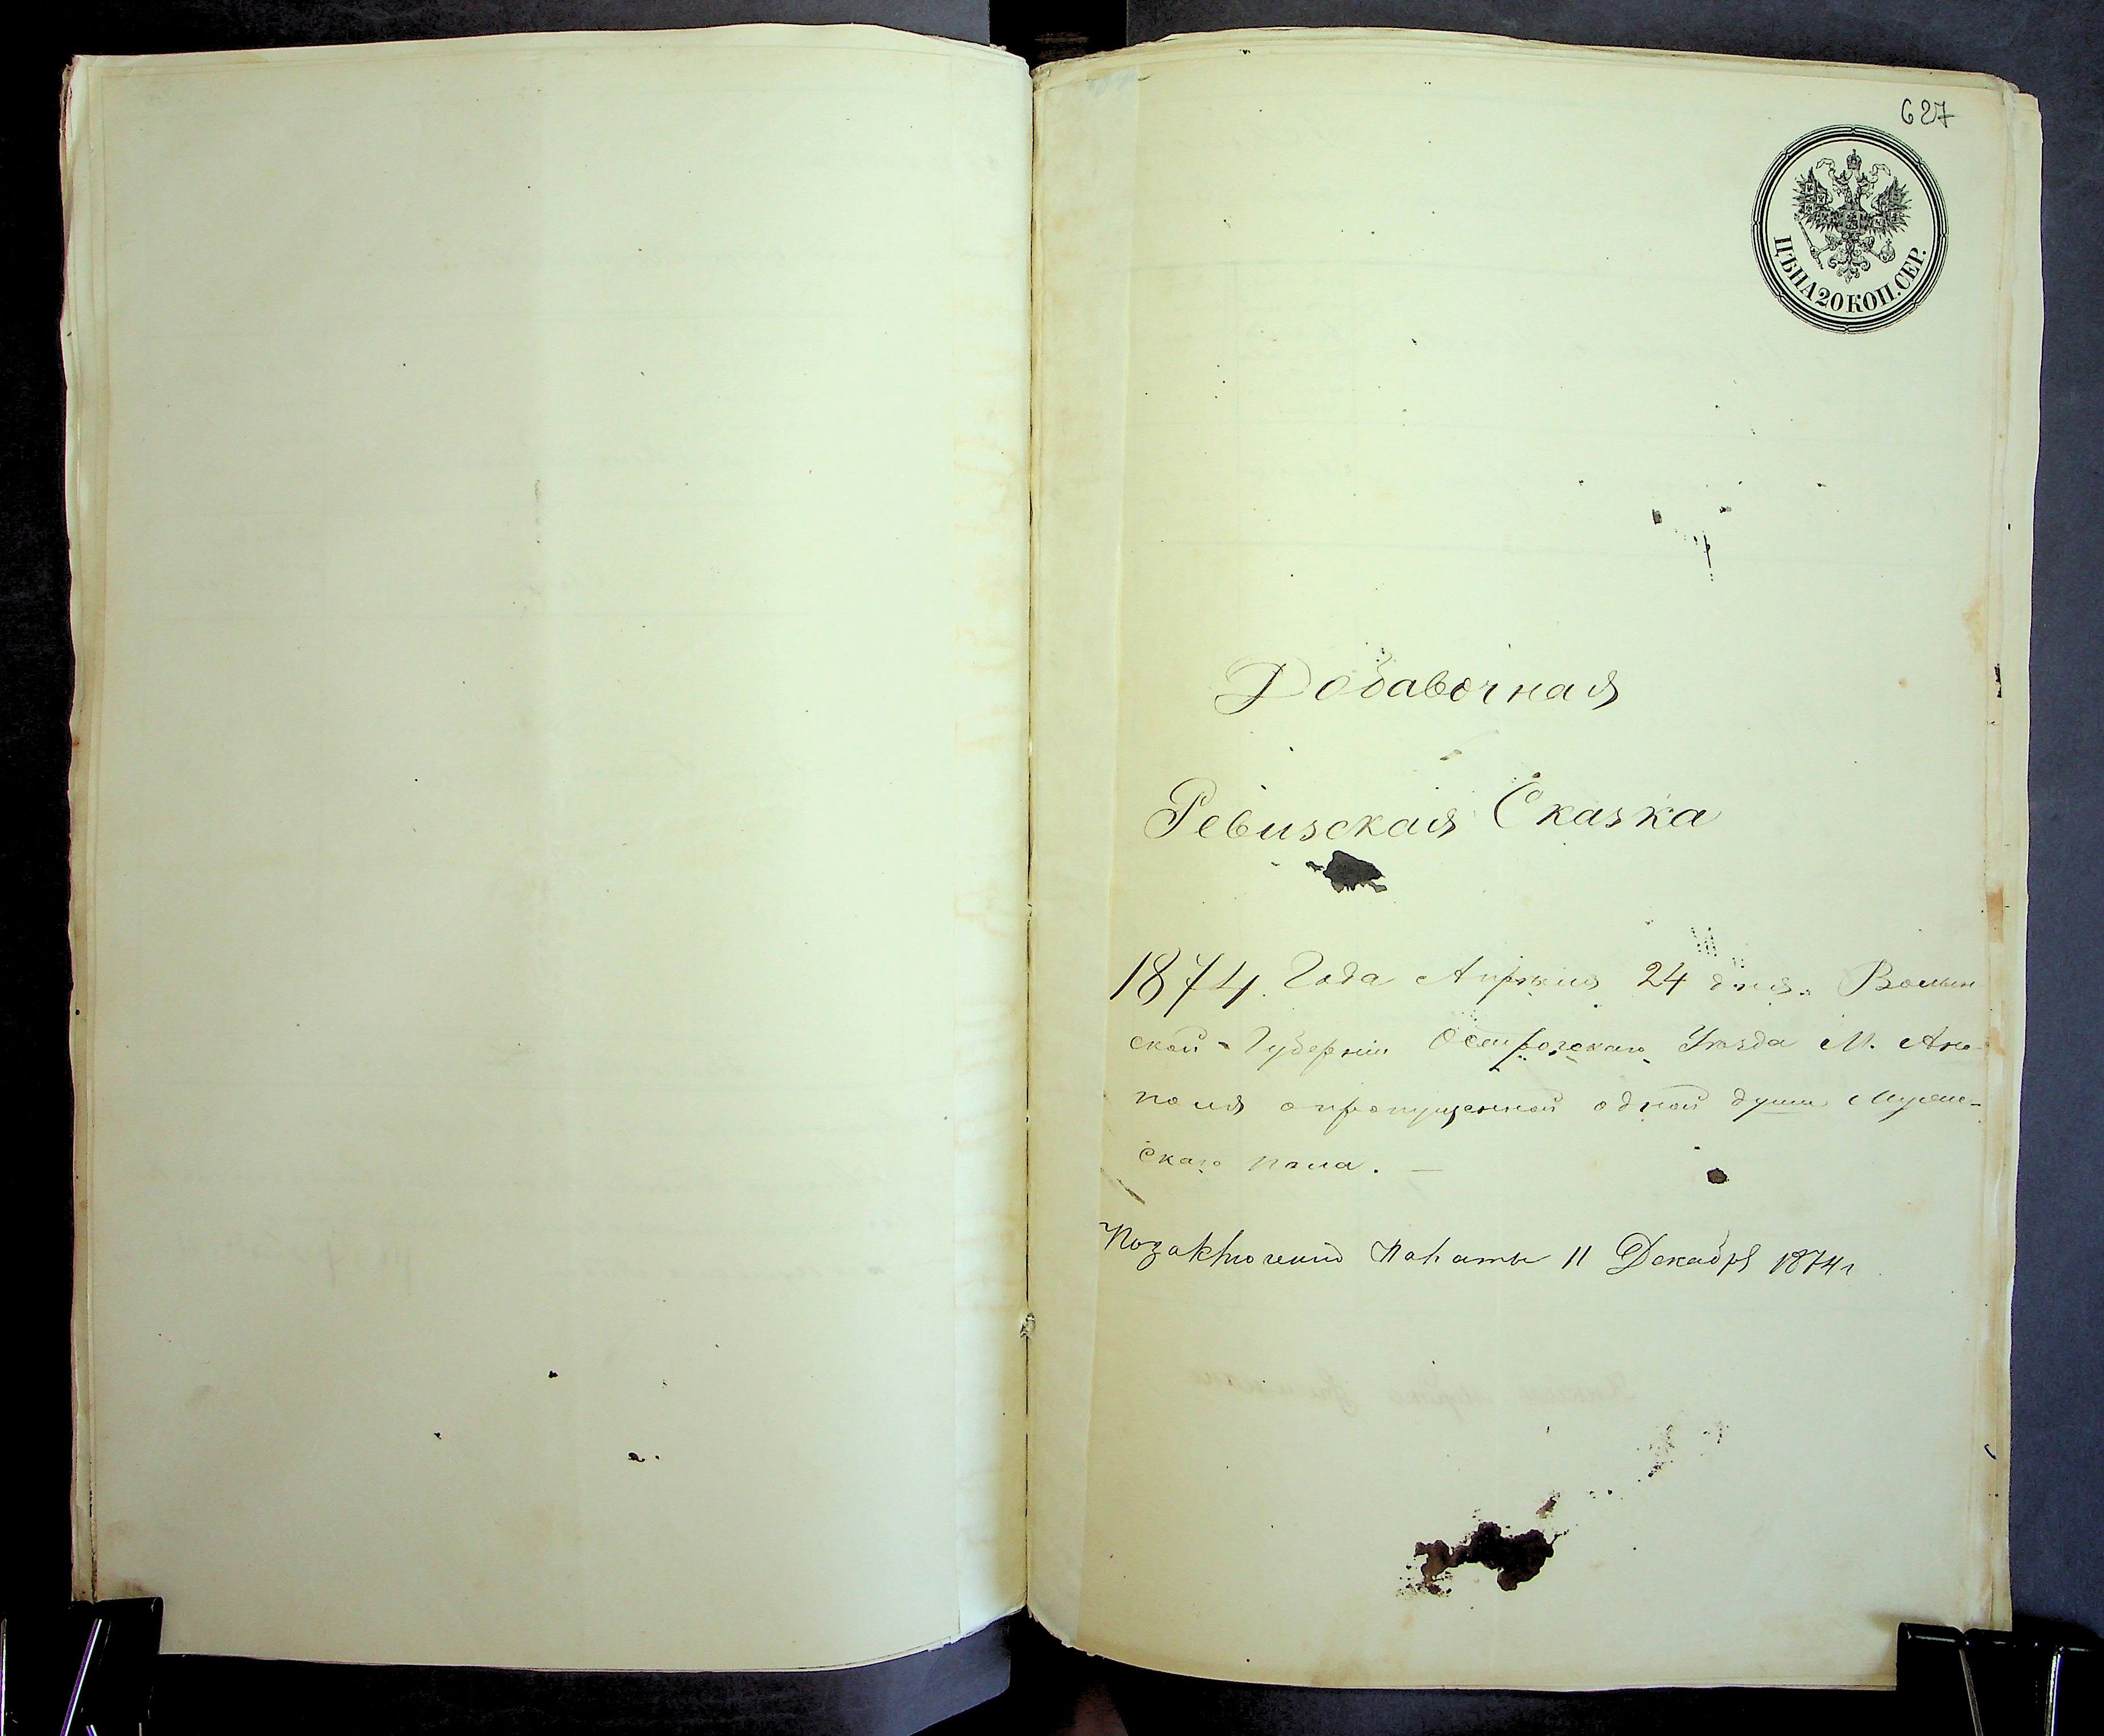 627
ЦѢНА 20 КОП. СЕР.
Добавочная
Ревизская Сказка
1874. Года Апрѣля 24 дня. Волын
ской Губерніи Острогскаго Уѣзда М. Ано-
поля о пропущенной одной души Мужс-
скаго пола. —
По заключенію Палаты 11 Декабря 1874 г